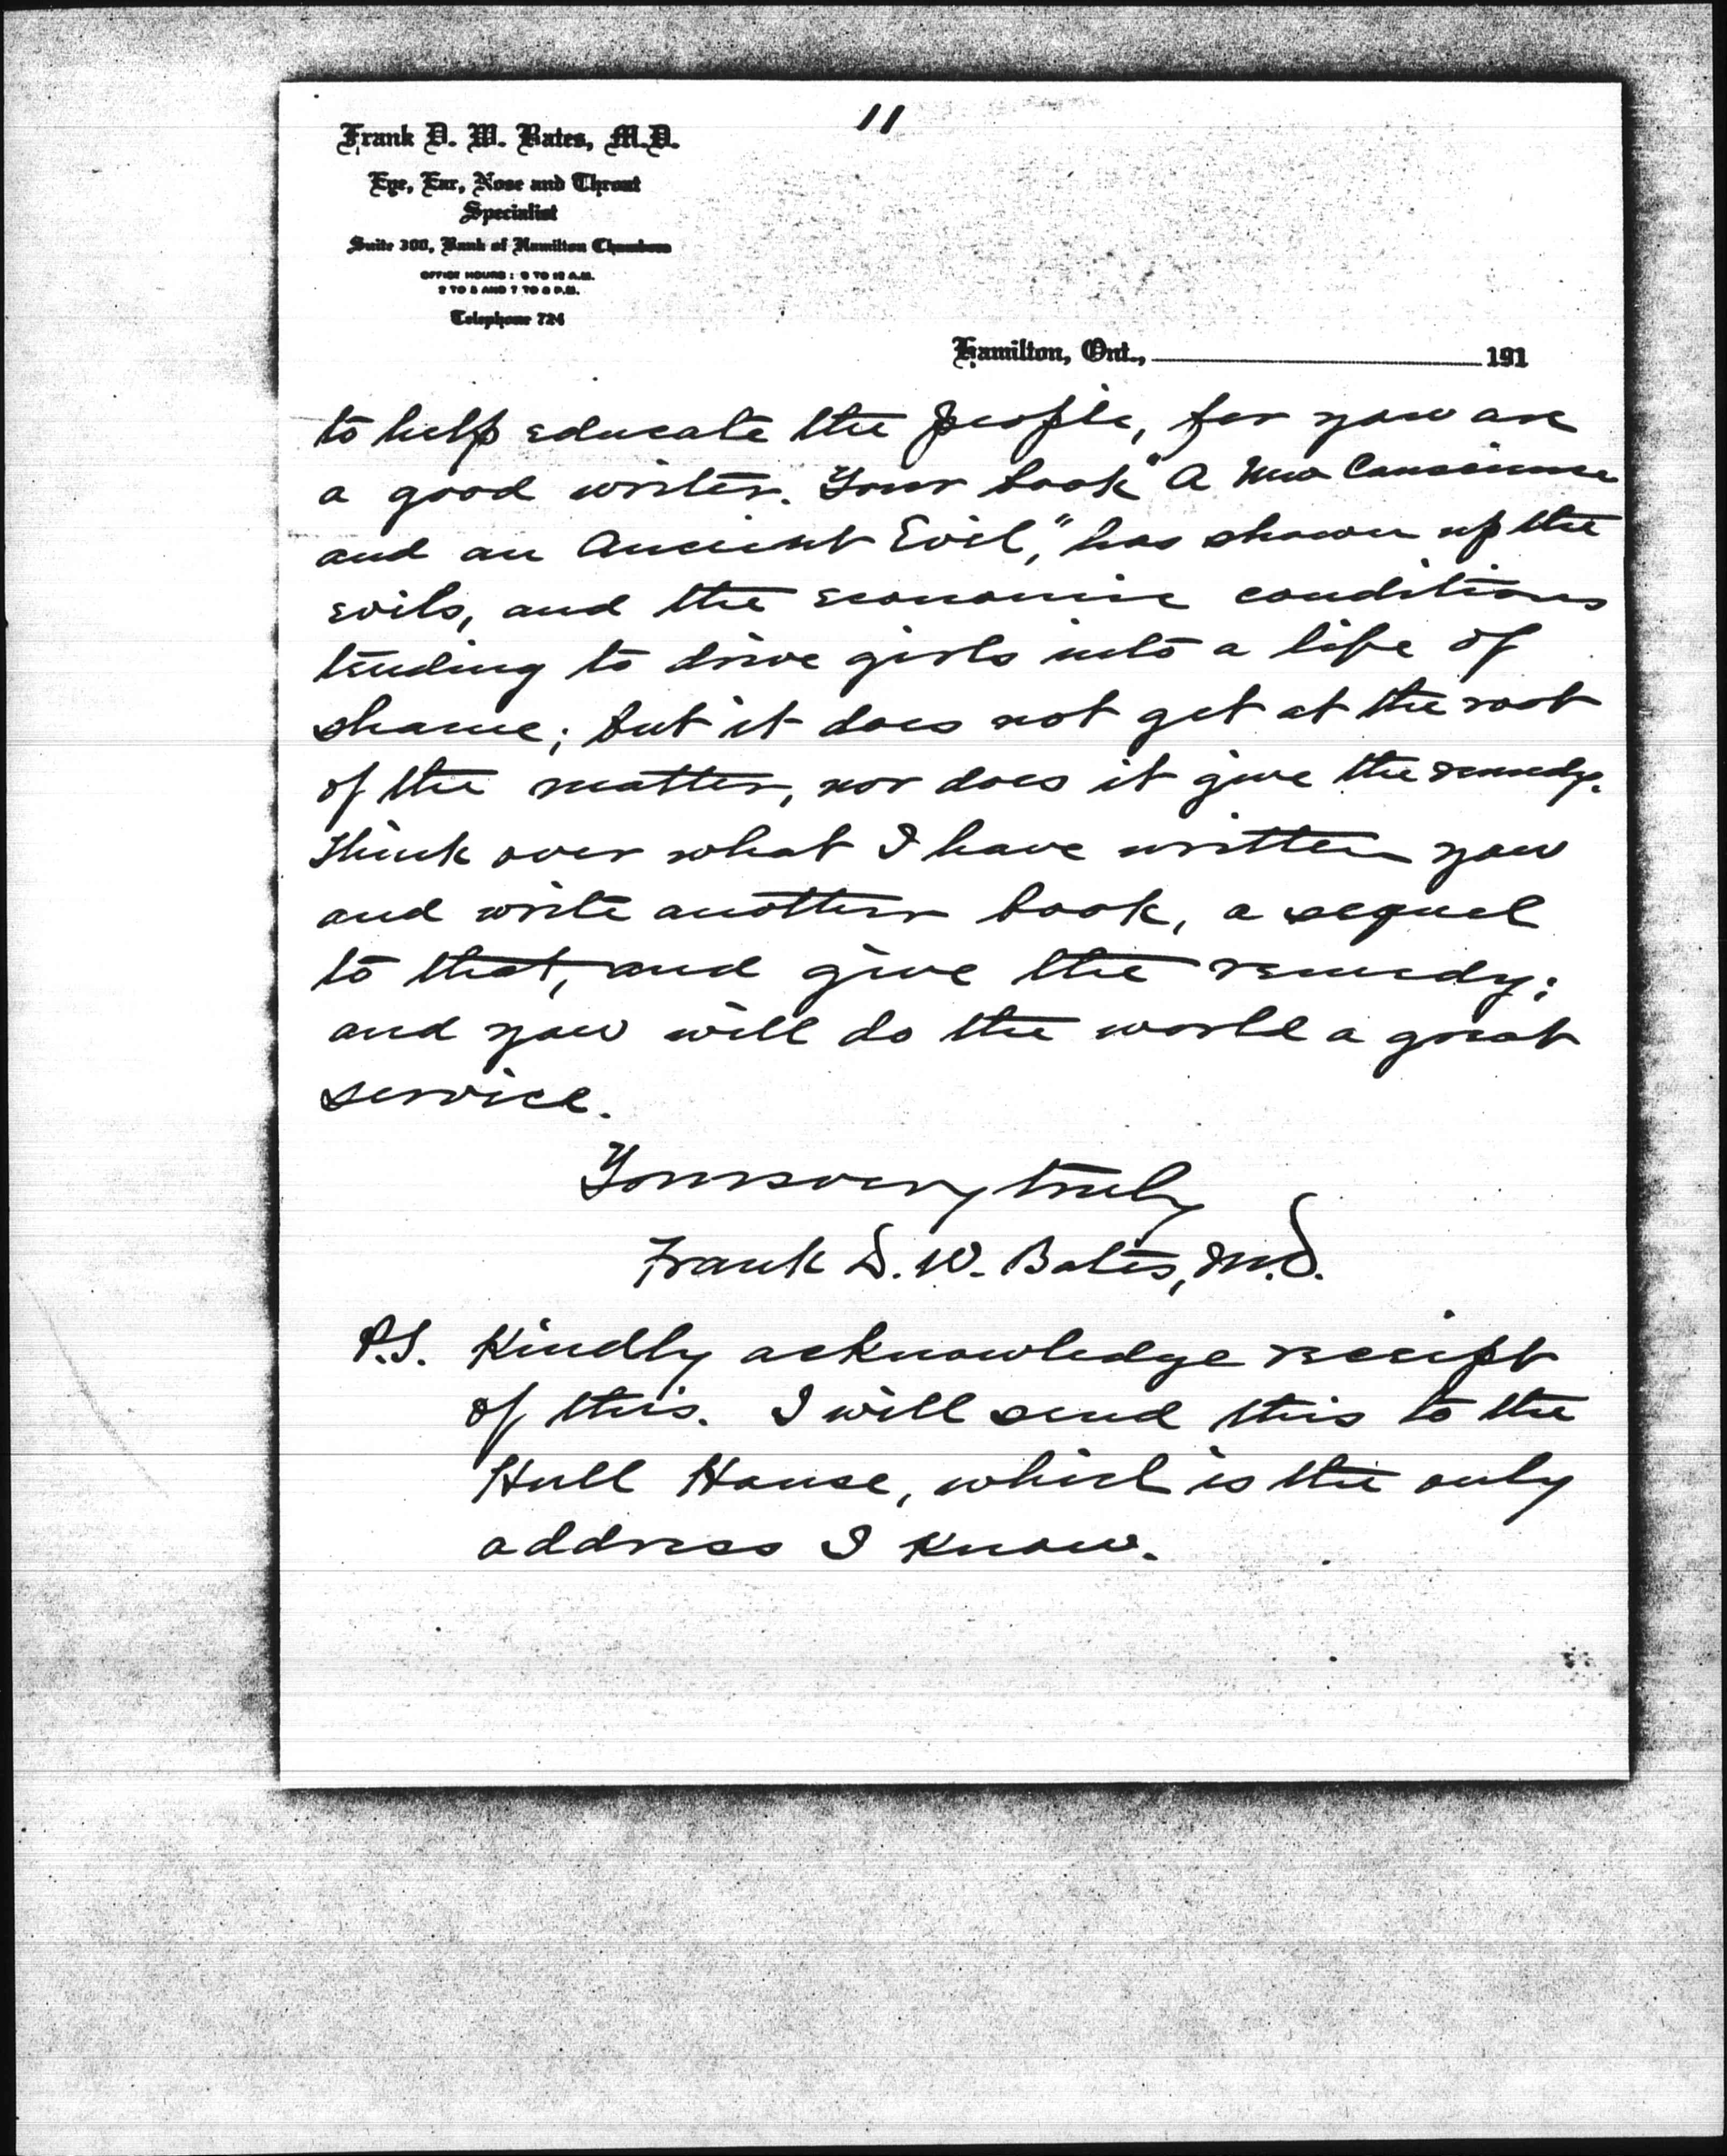 11
Frank D. W. Bates, M.D.
Eye, Ear, Nose and Throat
Specialist
Suite 300, Bank of Hamilton Chambers
OFFICE HOURS: 9 TO 12 A.M.
2 TO 5 AND 7 TO 8 P.M.
Telephone 724
Hamilton, Ont., 191
to help educate the people, for you are
a good writer. Your book "A New Conscience
and an Ancient Evil," has shown up the
evils, and the economic conditions
tending to drive girls into a life of
shame; but it does not get at the root
of the matter, nor does it give the remedy.
Think over what I have written you
and write another book, a sequel
to that, and give the remedy;
and you will do the world a great
service.
Yours very truly
Frank D. W. Bates, M.D.
P.S. Kindly acknowledge receipt
of this. I will send this to the
Hull House, which is the only
address I know.